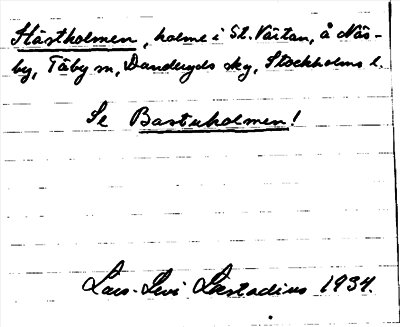 Hästholmen, holme i St. Värtan, å Näs-
by, Täby sn, Danderyds skg, Stockholms l.
Se Bastuholmen!
Lars-Levi Læstadius 1934.